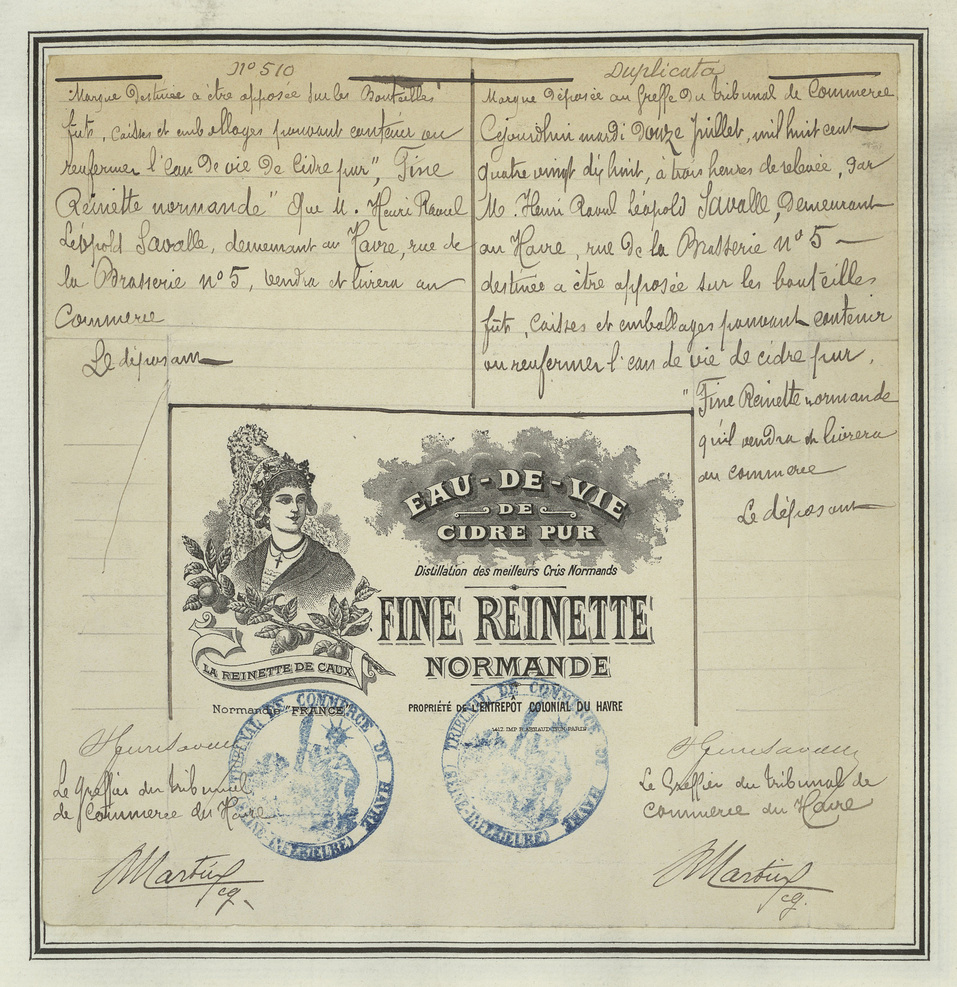 N° 510
Marque destinée a être apposée sur les Bouteilles
fûts, caisses et emballages pouvant contenir ou
renfermer l'eau de vie de Cidre pur, "Fine
Reinette normande" que M. Henri Raoul
Léopold Savalle, demeurant au Havre, rue de
la Brasserie n° 5, vendra et livrera au
Commerce
Le déposant
Duplicata
Marque déposée au Greffe du tribunal de Commerce
Cejourd'hui mardi douze Juillet, mil huit cent
quatre vingt dix huit, à trois heures de relevée, par
M. Henri Raoul Léopold Savalle, demeurant
au Havre, rue de la Brasserie n° 5
destinée a être apposée sur les bouteilles
fûts, caisses et emballages pouvant contenir
ou renfermer l'eau de vie de cidre pur,
"Fine Reinette normande
qu'il vendra et livrera
au commerce
Le déposant
EAU-DE-VIE
DE
CIDRE PUR
Distillation des meilleurs Crûs Normands
FINE REINETTE
NORMANDE
LA REINETTE DE CAUX
Normandie "FRANCE"
PROPRIÉTÉ DE L'ENTREPÔT COLONIAL DU HAVRE
TRIBUNAL DE COMMERCE DU HAVRE
TRIBUNAL DE COMMERCE DU HAVRE
Henri Savalle
Le Greffier du tribunal
de Commerce du Havre
Henri Savalle
Le Greffier du tribunal de
commerce du Havre